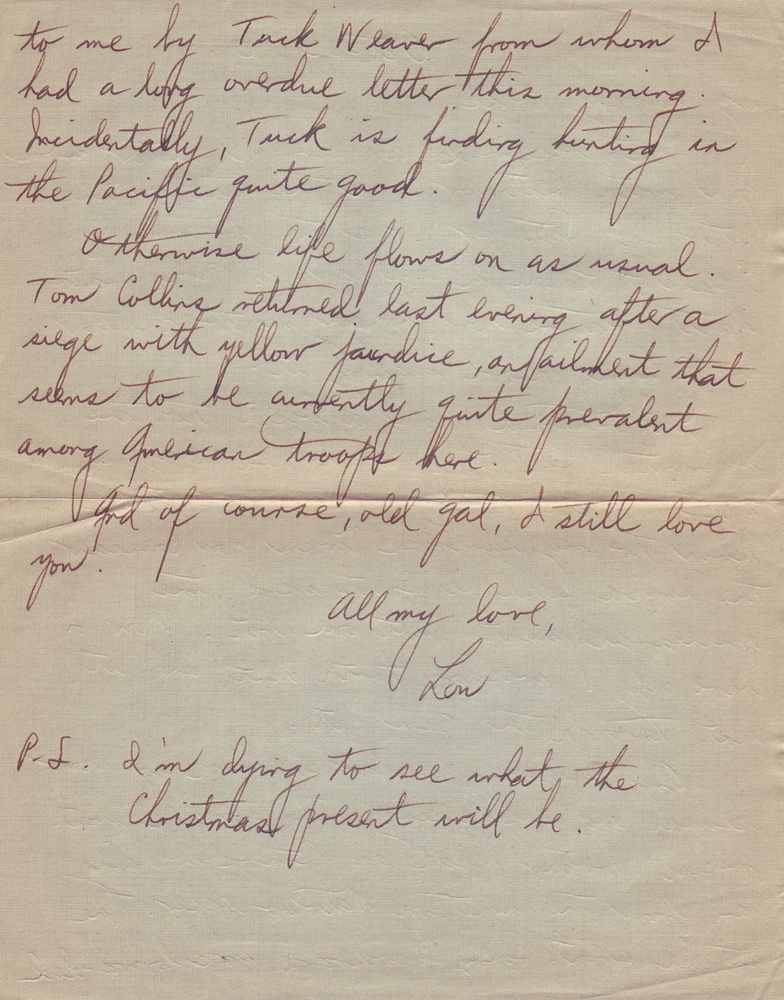 to me by Tuck Weaver from whom I
had a long overdue letter this morning.
Incidentally, Tuck is finding hunting in
the Pacific quite good.
Otherwise life flows on as usual.
Tom Collins returned last evening after a
siege with yellow jaundice, an ailment that
seems to be currently quite prevalent
among American troops here.
And of course, old gal, I still love
you.
All my love,
Lou
P.S. I'm dying to see what the
Christmas present will be.